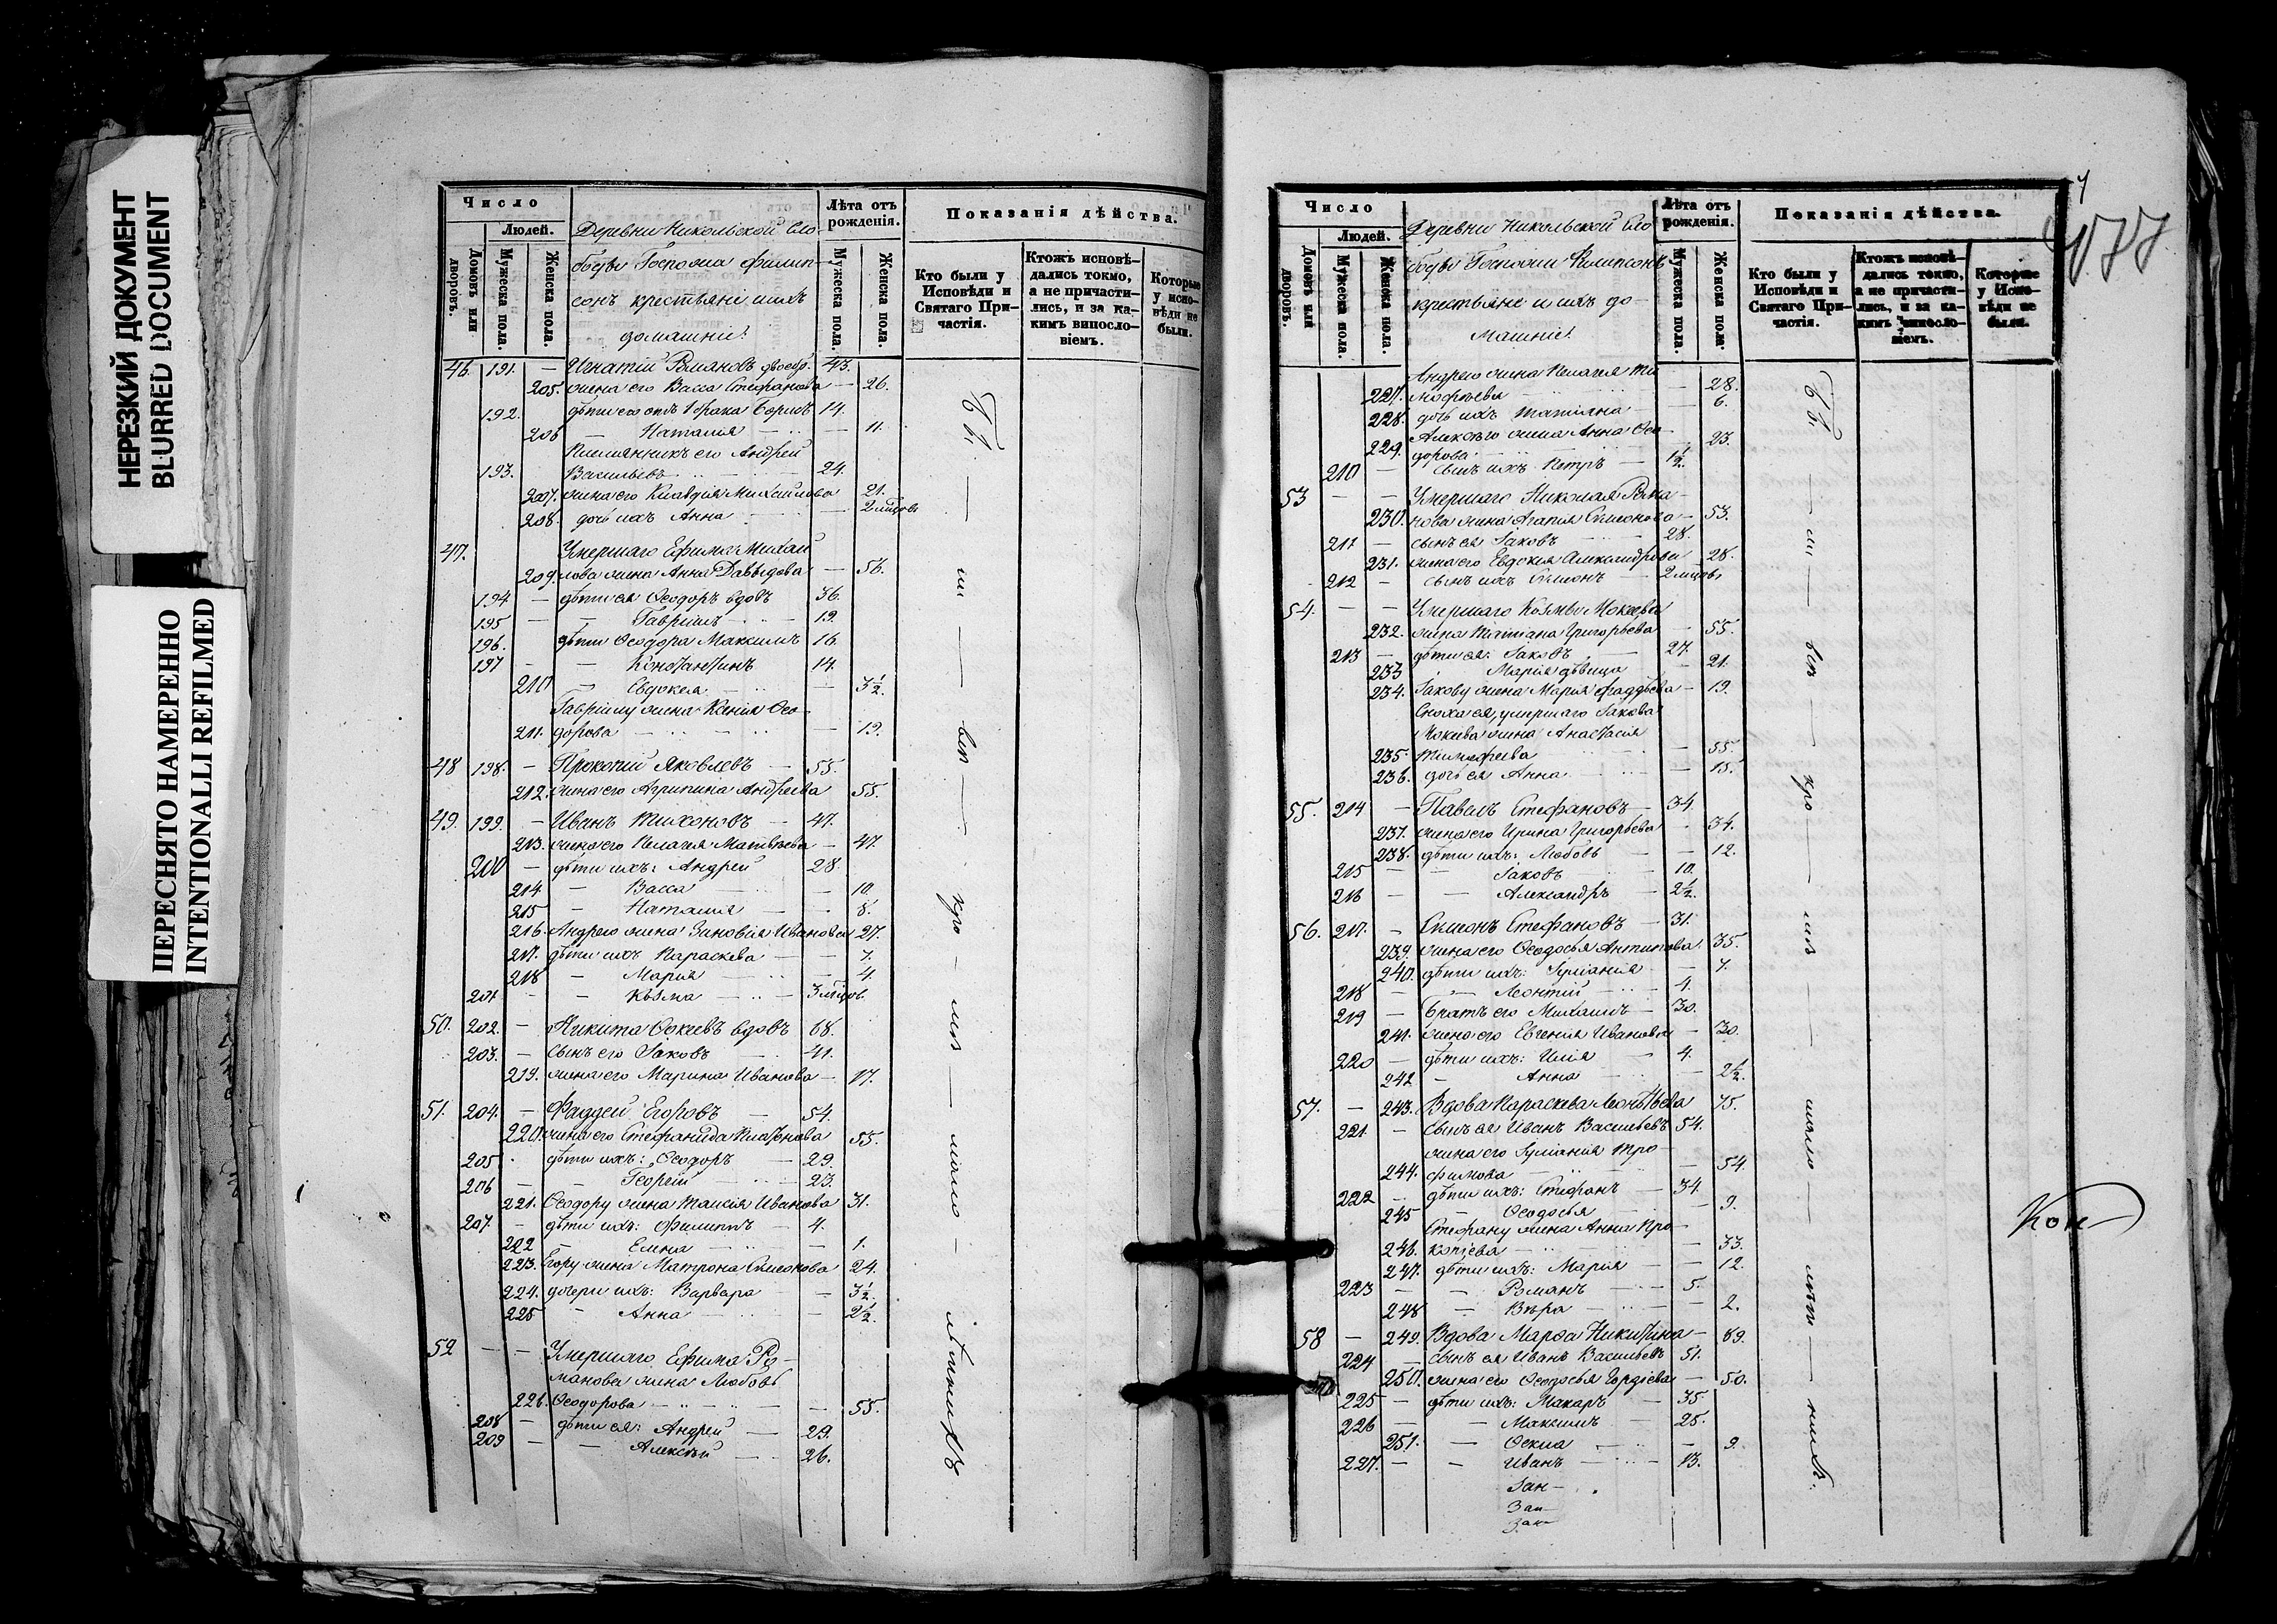 НЕРЕЗКИЙ ДОКУМЕНТ
BLURRED DOCUMENT
ПЕРЕСНЯТО НАМЕРЕННО
INTENTIONALLI REFILMED
Число
Людей.
Домовъ или дворовъ.
Мужеска пола.
Женска пола.
Деревни Никольской Сло-
боды Госпожи Филип-
сонъ крестьяне и ихъ
домашніе
Лѣта отъ рожденія.
Мужеска пола.
Женска пола.
Показанія дѣйства.
Кто были у Исповѣди и Святаго Причастія.
Ктожъ исповѣдались токмо, а не причастились, и за какимъ винословіемъ.
Которые у исповѣди не были.
46. 191. — Игнатій Романовъ двоебр. 43.
205. жена его Васса Стефанова — 26.
192. дѣти его отъ 1 брака Борисъ 14.
206 — Наталія — 11.
Племянникъ его Андрей
193. Васильевъ — 24.
207. жена его Клавдія Михайлова 21.
208. дочь ихъ Анна — 2 мѣсцовъ
47. Умершаго Ефима Михай
209. лова жена Анна Давыдова — 56.
194 — дѣти ея Ѳеодоръ вдовъ 36.
195 — Гавріилъ — 19.
196. дѣти Ѳеодора Максимъ 16.
197 — Константинъ 14.
210 — Евдокія — 3½.
Гавріилу жена Ксенія Ѳео-
211. дорова — 19.
48 198. — Прокопій Яковлевъ — 55.
212. жена его Агрипина Андреева 55.
49. 199. — Иванъ Тихоновъ — 47.
213. жена его Пелагея Матвѣева — 47.
200 — дѣти ихъ: Андрей 28.
214 — Васса — 10.
215 — Наталія — 8.
216. Андрею жена Зиновія Иванова 27.
217. дѣти ихъ Параскева — 7.
218 — Марія — 4.
201 — Козма — 3 мѣсцов.
50. 202. — Никита Ѳокіевъ вдовъ 68.
203. — сынъ его Іаковъ — 41.
219. жена его Марина Иванова — 17.
51. 204. — Фаддей Егоровъ — 54.
220. жена его Стефанида Платонова 55.
205. дѣти ихъ: Ѳеодоръ — 29.
206 — Георгій — 23.
221. Ѳеодору жена Таисія Иванова 31.
207. — дѣти ихъ: Филиппъ — 4.
222 — Елена — 1.
223. Егору жена Матрона Симеонова 24.
224. дочери ихъ: Варвара — 3½.
225 — Анна — 2½.
52 — — Умершаго Ефима Ро-
манова жена Любовь
226. Ѳеодорова — 55.
208 — дѣти ея: Андрей — 29.
209 — Алексѣй — 26.
Бы — ли — вси — кро — мѣ — мало — лѣтнихъ
Число
Людей.
Домовъ или дворовъ.
Мужеска пола.
Женска пола.
Деревни Никольской Сло
боды Госпожи Филипсонъ
крестьяне и ихъ до-
машніе
Лѣта отъ рожденія.
Мужеска пола.
Женска пола.
Показанія дѣйства.
Кто были у Исповѣди и Святаго Причастія.
Ктожъ исповѣдались токмо, а не причастились, и за какимъ винословіемъ.
Которые у Исповѣди не были.
Андрею жена Пелагея Ти
227. мофѣева — 28.
228. дочь ихъ Татіана — 6.
Алексѣю жена Анна Ѳео-
229. дорова — 23.
210 — сынъ ихъ Петръ — 1½.
53 — — Умершаго Николая Рома-
230. нова жена Агапія Симеонова — 53.
211 — сынъ ея Іаковъ — 28.
231. жена его Евдокія Александрова 28.
212 — сынъ ихъ Симеонъ — 2 мѣсцовъ
54. — — Умершаго Козмы Мокеева
232. жена Татіана Григорьева — 55.
213 — дѣти ея: Іаковъ — 27.
233 Марія дѣвица — 21.
234. Іакову жена Марія Фаддѣева — 19.
Сноха ея, умершаго Іакова
Мокеева жена Анастасія
235. Тимофеева — 55.
236. дочь ея Анна — 15.
55. 214 — Павелъ Стефановъ — 34.
237. жена его Ирина Григорьева 34.
238. дѣти ихъ: Любовь — 12.
215 — Іаковъ — 10.
216 — Александръ — 2½.
56. 217. — Симеонъ Стефановъ — 31.
239. жена его Ѳеодосья Антипова 35.
240. дѣти ихъ: Іуліанія — 7.
218 — Леонтій — 4.
219 — братъ его Михаилъ — 30.
241. жена его Евгенія Иванова — 30.
220 — дѣти ихъ: Илія — 4.
242 — Анна — 2½.
57. — 243. Вдова Параскева Леонтьева 75.
221. — сынъ ея Иванъ Васильевъ 54.
жена его Іуліанія Тро-
244. фимова — 54.
222 — дѣти ихъ: Стефанъ — 34.
245 — Ѳеодосья — 9.
Стефану жена Анна Про-
246. копіева — 33.
247. дѣти ихъ: Марія — 12.
223 — Романъ — 5.
248 — Вѣра — 2.
58 — 249. Вдова Марѳа Никитина — 69.
224 — сынъ ея Иванъ Васильевъ 51.
250. жена его Ѳеодосья Гордіева — 50.
225 — дѣти ихъ: Макаръ — 35
226 — Максимъ — 25.
251. — Ѳекла — 9.
227. — Иванъ — 13.
Бы — ли — вси — кро — мѣ — мало — лѣт — нихъ.
Кон